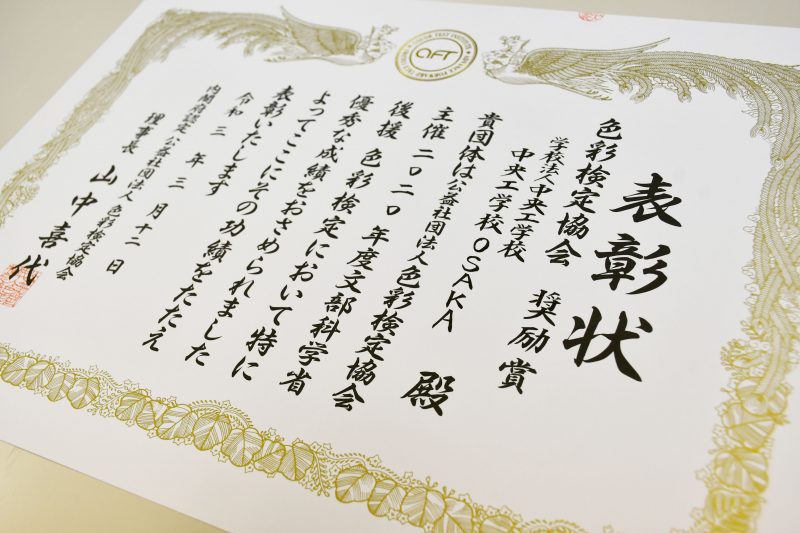 表彰状
色彩検定協会 奨励賞
学校法人中央工学校
中央工学校
中央工学校OSAKA 殿
貴団体は公益社団法人色彩検定協会
主催二〇二〇年度文部科学省
後援 色彩検定において特に
優秀な成績をおさめられました
よってここにその功績をたたえ
表彰いたします
令和三年三月十二日
内閣府認定公益社団法人 色彩検定協会
理事長 山中喜代
AFT